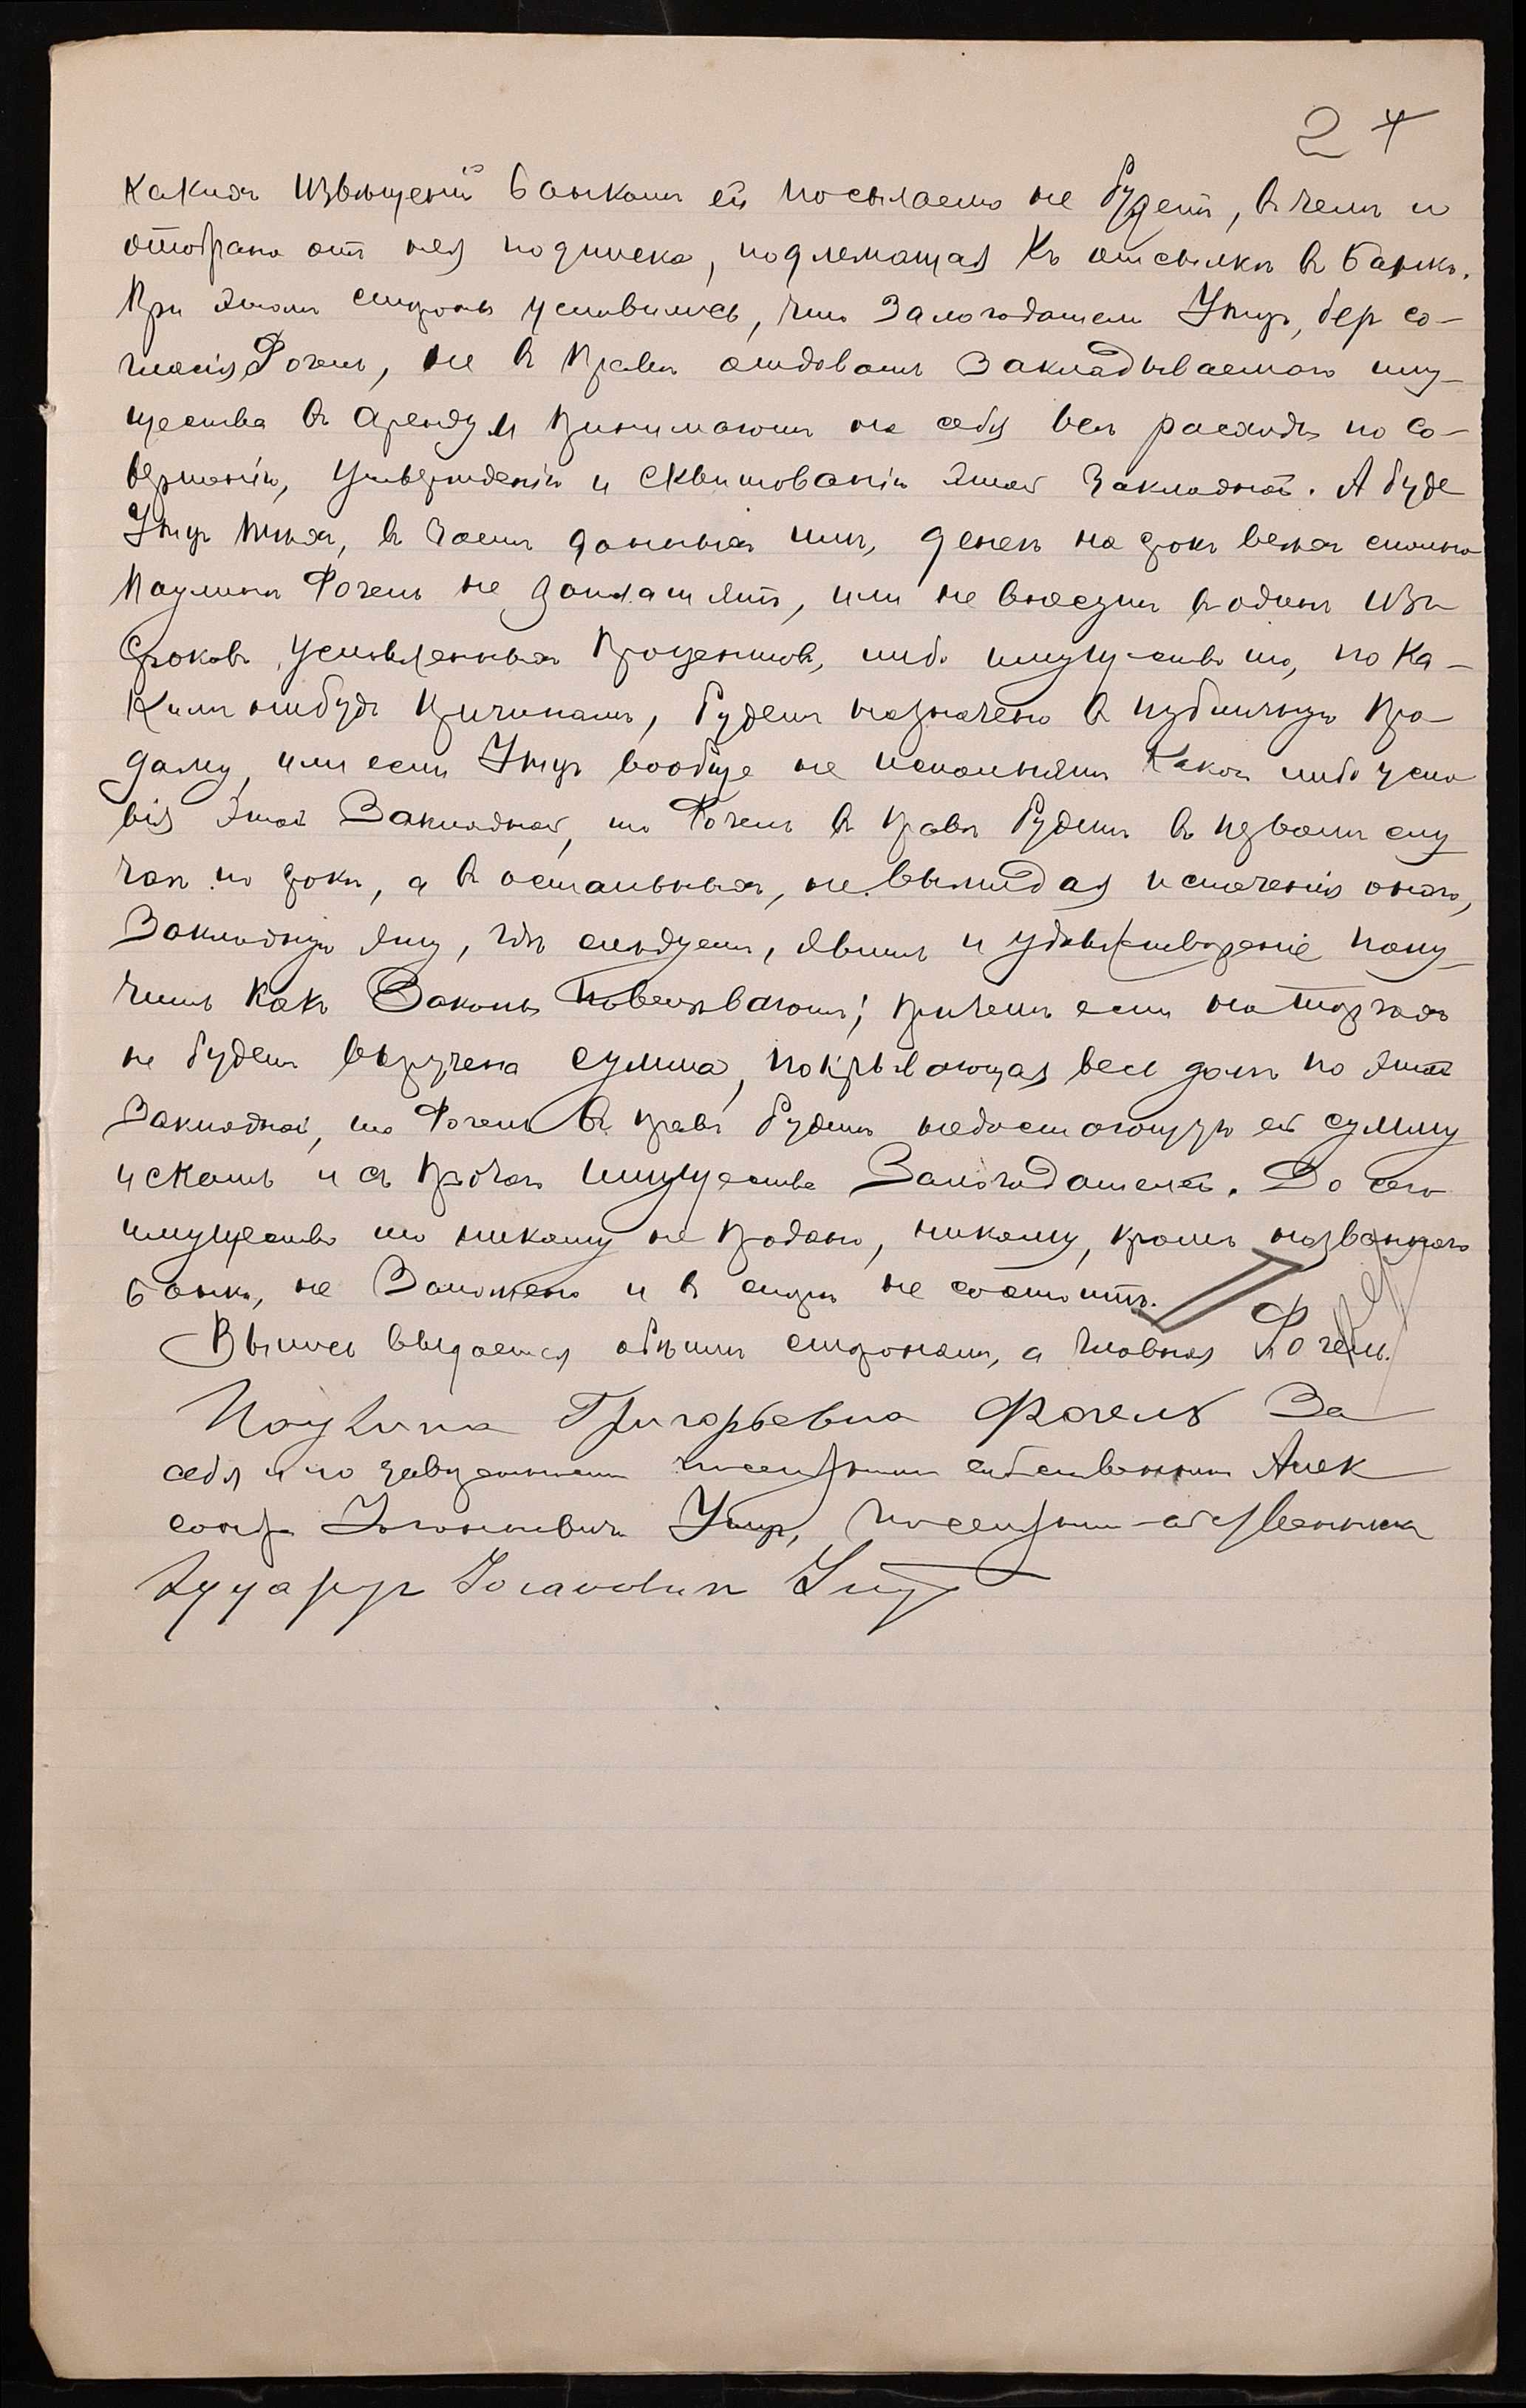 24
какихъ извѣщеній банкомъ ей посылаемо не будетъ, въ чемъ и
отобрана отъ нея подписка, подлежащая къ отсылкѣ въ банкъ.
При этомъ стороны условились, что Залогодатели Унгеръ, безъ со-
гласія Фогель, не въ правѣ отдавать закладываемаго иму-
щества въ аренду и принимаютъ на себя всѣ расходы по со-
вершенію, утвержденію и сквитованію этой закладной. А буде
Унгеръ тѣхъ, въ заемъ данныхъ имъ, денегъ на срокъ всѣхъ сполна
Паулинѣ Фогель не заплатятъ, или не внесутъ въ одинъ изъ
сроковъ условленныхъ процентовъ, либо имущество то, по ка-
кимъ нибудь причинамъ, будетъ назначено въ публичную про-
дажу, или если Унгеръ вообще не исполнятъ какого либо усло
вія этой Закладной, то Фогель въ правѣ будетъ въ первомъ слу
чаѣ по срокѣ, а въ остальныхъ, не выжидая истеченія онаго,
Закладную эту, гдѣ слѣдуетъ, явить и удовлетвореніе полу-
чить какъ Законы повелѣваютъ; причемъ если на торгахъ
не будетъ выручена сумма, покрывающая весь долгъ по этой
Закладной, то Фогель въ правѣ будетъ недостающую ей сумму
искать и съ прочаго имущества Залогодателей. До сего
имущество то никому не продано, никому, кромѣ названнаго
банка, не Заложено и въ спорѣ не состоитъ.
Выпись выдается обѣимъ сторонамъ, а главная Фогель.
Паулина Григорьевна Фогель За
себя и по
собственникъ Алек
сандръ Унгеръ, поселянинъ-собственникъ
Эдуардъ Унгеръ